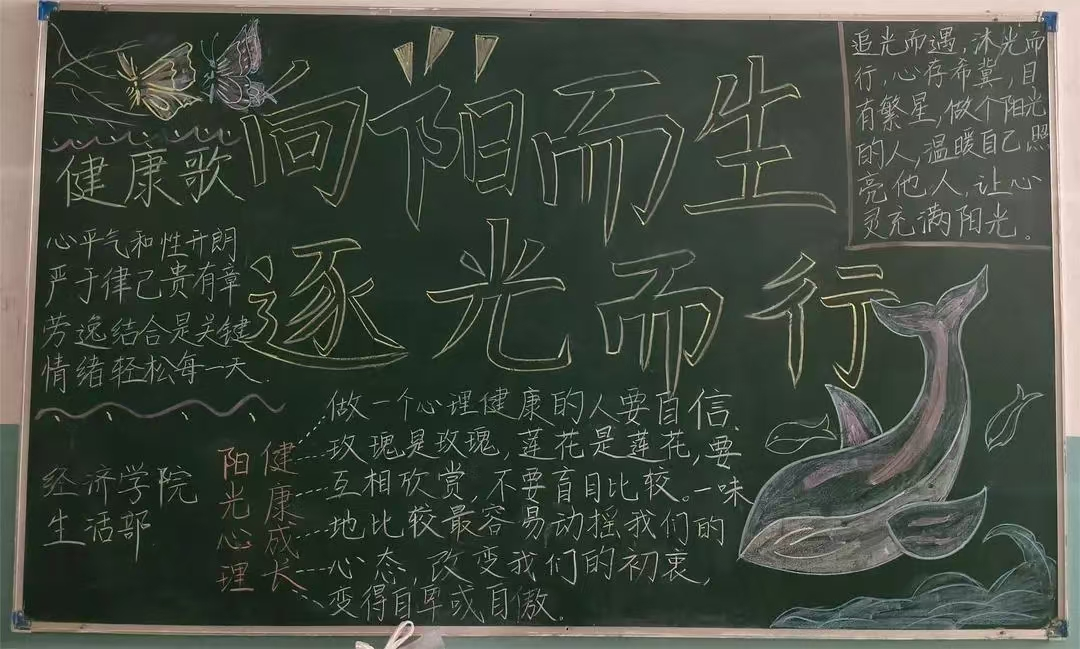 向阳而生
逐光而行
健康歌
心平气和性开朗
严于律己贵有章
劳逸结合是关键
情绪轻松每一天.
经济学院
生活部
追光而遇,沐光而
行,心存希冀,目
有繁星,做个阳光
的人,温暖自己照
亮他人,让心
灵充满阳光。
阳光心理
健康成长
做一个心理健康的人要自信、
玫瑰是玫瑰,莲花是莲花,要
互相欣赏,不要盲目比较。一味
地比较最容易动摇我们的
心态,改变我们的初衷,
变得自卑或自傲。